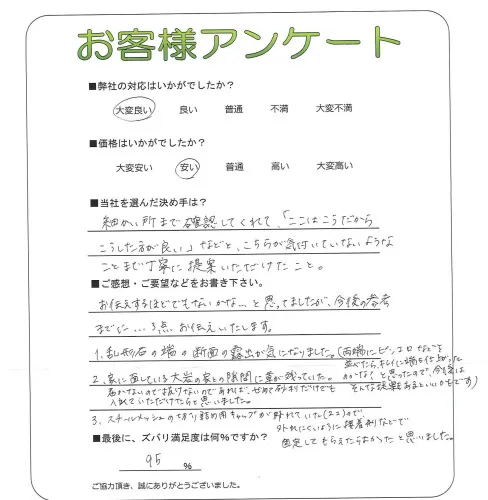 お客様アンケート
■弊社の対応はいかがでしたか?
大変良い 良い 普通 不満 大変不満
■価格はいかがでしたか?
大変安い 安い 普通 高い 大変高い
■当社を選んだ決め手は?
細かい所まで確認してくれて、「ここはこうだから
こうした方が良い」などと、こちらが気付いていないような
ことまで丁寧に提案いただけたこと。
■ご感想・ご要望などをお書き下さい。
お伝えするほどでもないかな…と思ってましたが、今後の参考
までに…3点お伝えいたします。
1. 乱形石の端の断面の露出が気になりました。(両端にピンコロなどを
並べたら、キレイに端を仕切った
のかな?と思ったので、今後は
そんな提案もあるといいかもです)
2. 家に面している大岩の家との隙間に草が残っていた。
届かないので抜けないのであれば、せめて砂利だけでも
入れていただけたらと思いました。
3. スチールメッシュの切り詰め用キャップが外れていた(2コ)ので、
外れにくいように接着剤などで
固定してもらえたらよかったと思いました。
■最後に、ズバリ満足度は何%ですか?
95 %
ご協力頂き、誠にありがとうございました。